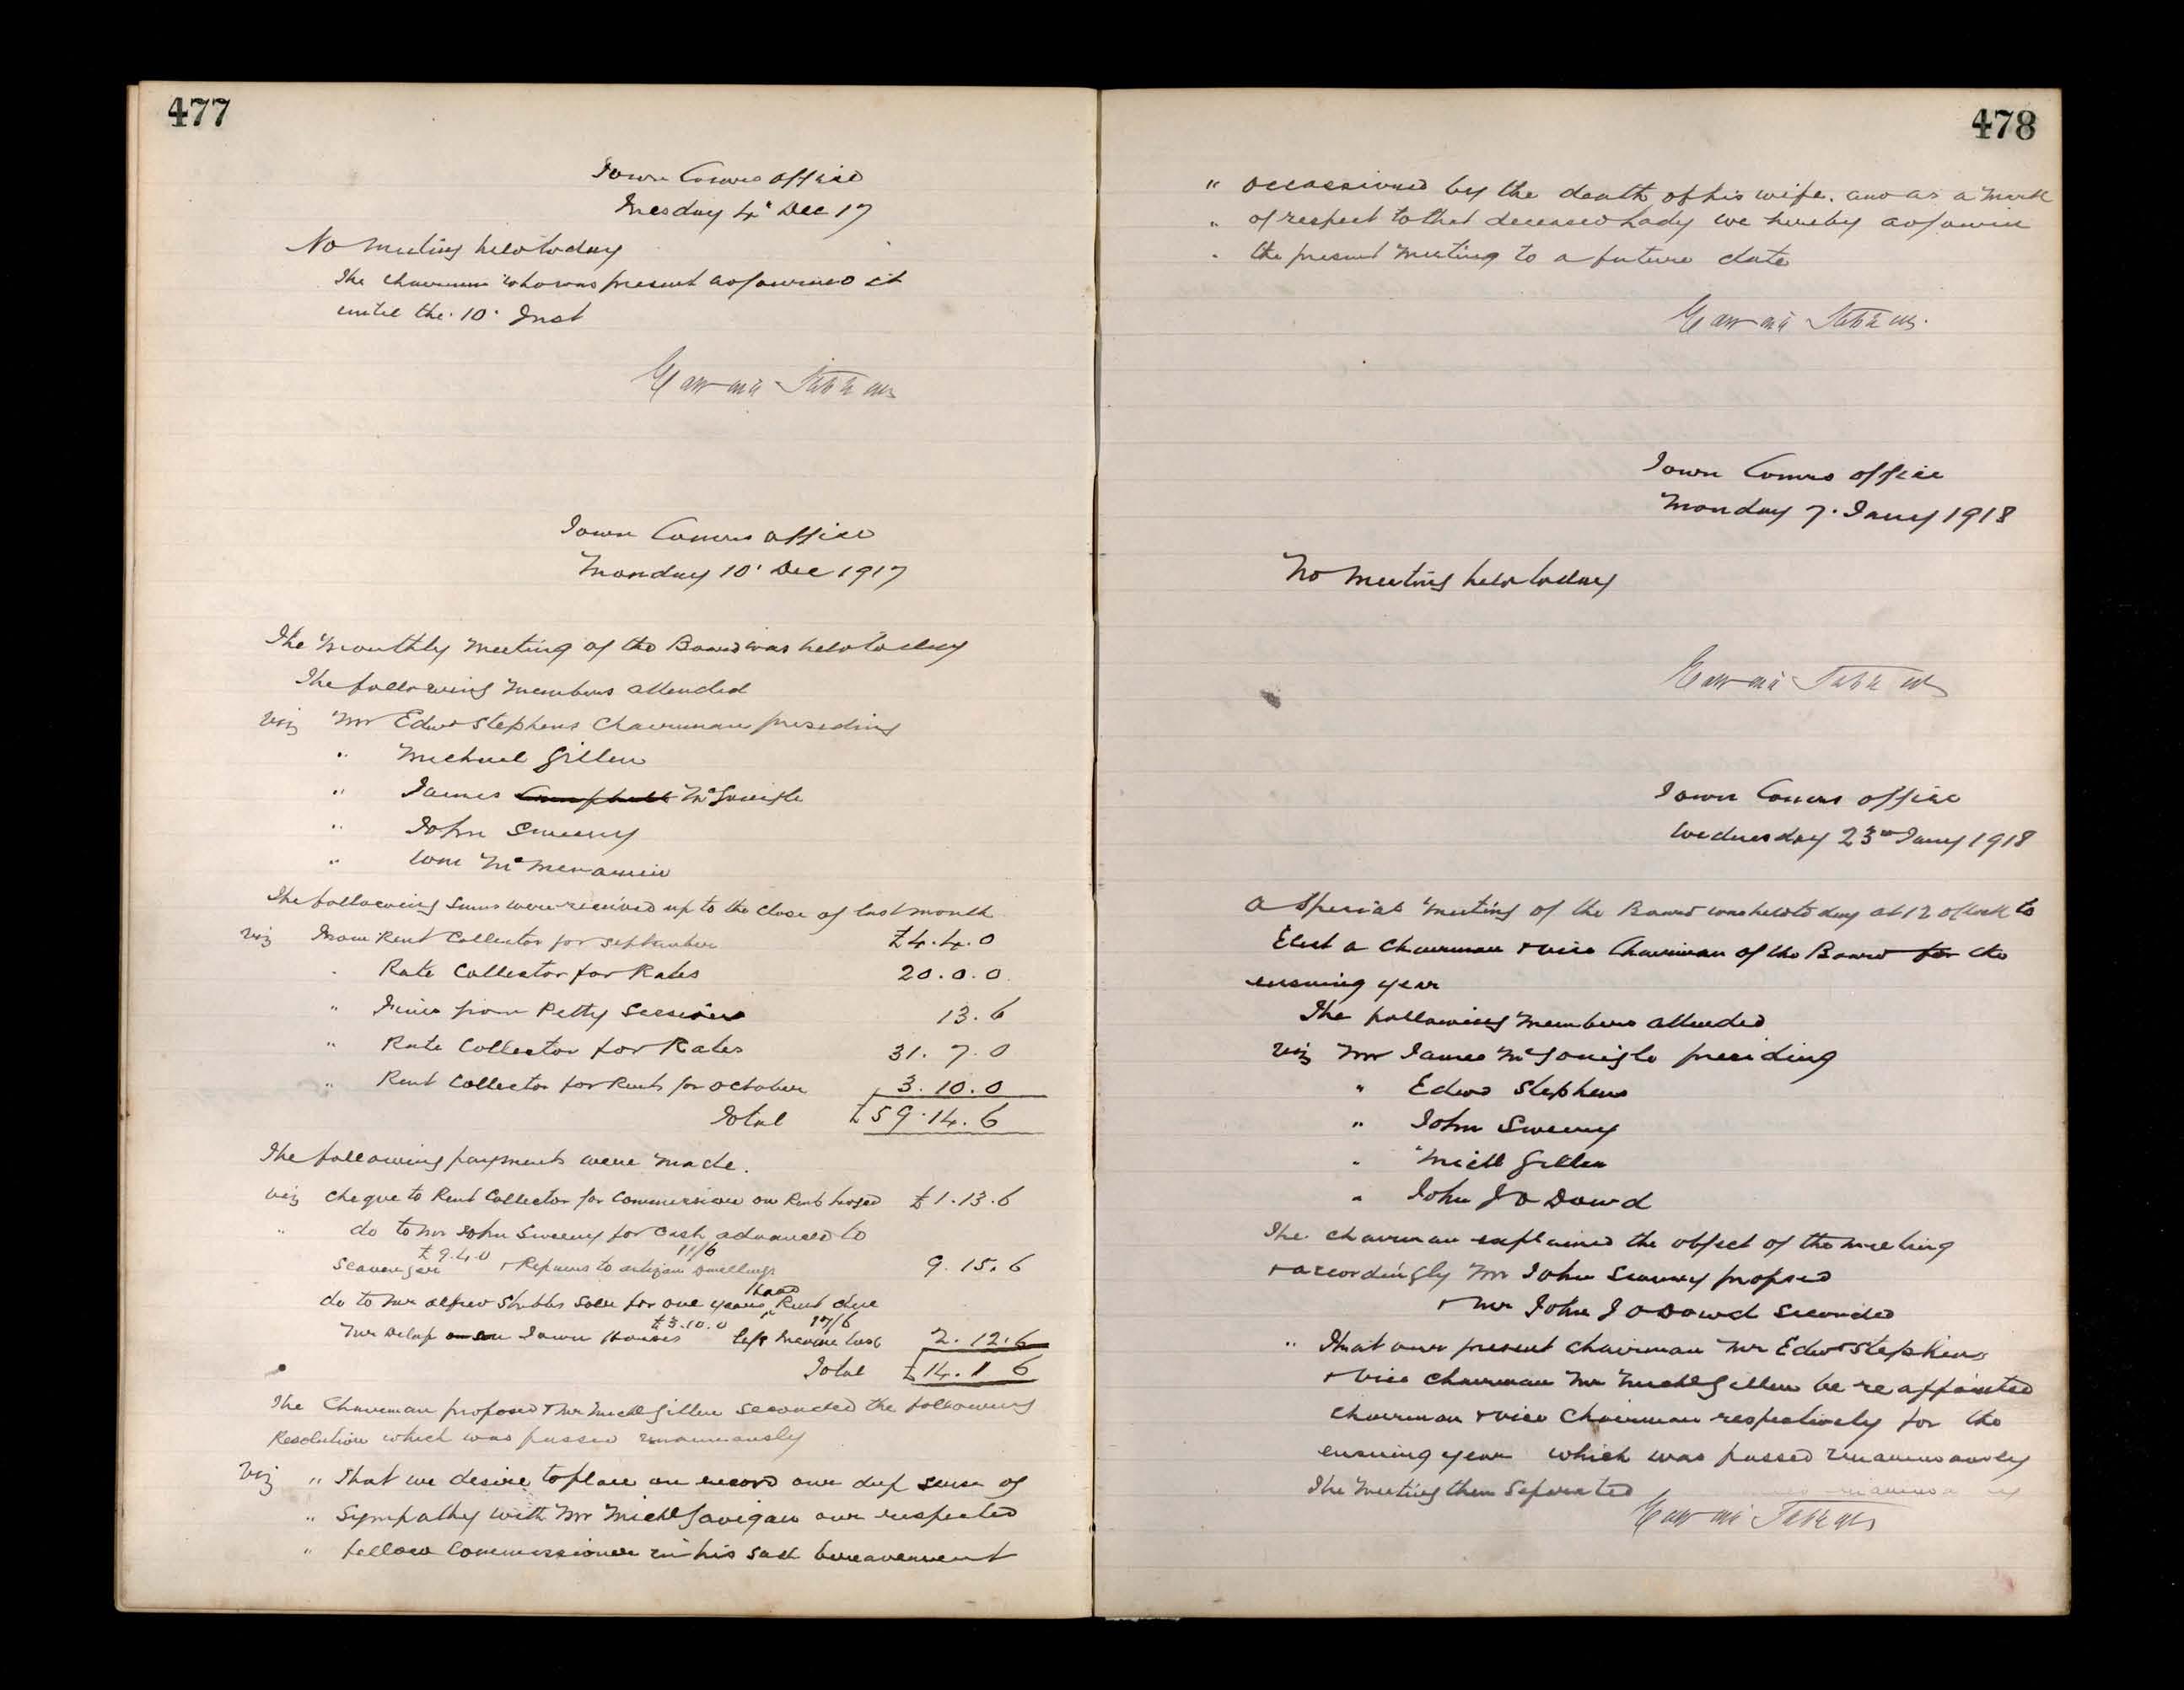 477
Town Comrs office
Tuesday 4' Dec 17
No Meeting held today
The chairman who was present adjourned it
until the 10' Inst
Edward Stephens
Town Comrs office
Monday 10' Dec 1917
The Monthly Meeting of the Board was held to day
The following Members attended
Viz Mr Edwd Stephens Chairman presiding
" Michael Gillen
" James Campbell McGonigle
" John Sweeny
" Wm McMenamin
The following sums were received up to the close of last month
Viz From Rent Collector for September £4.4.0
" Rate Collector for Rates 20.0.0
" Fines from Petty Sessions 13.6
" Rate Collector for Rates 31.7.0
" Rent Collector for Rents for October 3.10.0
Total £59.14.6
The following payments were made.
Viz Cheque to Rent Collector for Commission on Rents £1.13.6
" do to Mr John Sweeny for Cash advanced to
Scavenger £9.4.0 + Repairs to artizan dwellings 11/6 9.15.6
do to Mr Alfred Stubbs Solr for one years Head Rent due
Mr Delap on Town Houses £3.10.0 less Income tax 17/6 2.12.6
Total £14.1.6
The Chairman proposed + Mr Michl Gillen seconded the following
Resolution which was passed unanimously
Viz " That we desire to place on record our deep sense of
" Sympathy with Mr Michl Gavigan our respected
" fellow Commissioner in his sad bereavement
478
" occassioned by the death of his wife. and as a mark
" of respect to that deceased Lady we hereby adjourn
" the present Meeting to a future date
Edward Stephens
Town Comrs office
Monday 7. Jany 1918
No Meeting held today
Edward Stephens
Town Comrs office
Wednesday 23rd Jany 1918
A Special Meeting of the Board was held to day at 12 oClock to
Elect a Chairman + vice Chairman of the Board for the
ensuing year
The following Members attended
Viz Mr James McGonigle presiding
" Edwd Stephens
" John Sweeny
" Michl Gillen
" John J O Dowd
The chairman explained the object of the Meeting
+ accordingly Mr John Sweeny proposed
+ Mr John J O Dowd seconded
" That our present Chairman Mr Edwd Stephens
+ Vice Chairman Mr Michl Gillen be re appointed
Chairman + vice Chairman respectively for the
ensuing year which was passed unanimously
The Meeting then Seperated
Edward Stephens